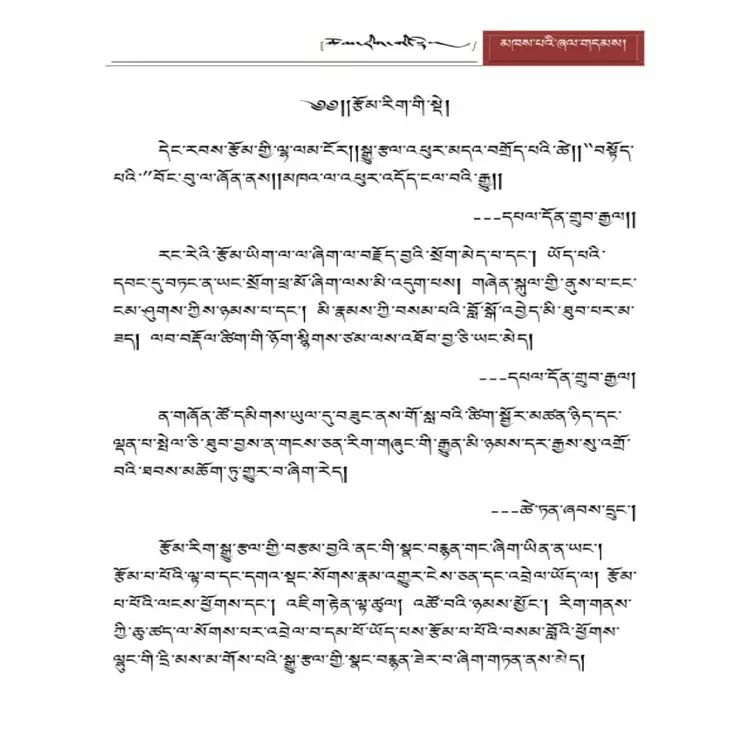 མཁས་པའི་ཞལ་གདམས།
༄༅།།རྩོམ་རིག་གི་སྡེ།
དེང་རབས་རྩོམ་གྱི་ལྷ་ལམ་ངོར།།སྒྱུ་རྩལ་འཕུར་མདའ་བགྲོད་པའི་ཚེ།།“བསྟོད་
པའི་”བོང་བུ་ལ་ཞོན་ནས།།མཁའ་ལ་འཕུར་འདོད་ངལ་བའི་རྒྱུ།།
---དཔལ་དོན་གྲུབ་རྒྱལ།།
རང་རེའི་རྩོམ་ཡིག་ལ་ལ་ཞིག་ལ་བརྗོད་བྱའི་སྲོག་མེད་པ་དང་། ཡོད་པའི་
དབང་དུ་བཏང་ན་ཡང་སྲོག་ཕྲ་མོ་ཞིག་ལས་མི་འདུག་པས། གཞེན་སྐུལ་གྱི་ནུས་པ་ངང་
ངམ་ཤུགས་ཀྱིས་ཉམས་པ་དང་། མི་རྣམས་ཀྱི་བསམ་པའི་བློ་སྒོ་འབྱེད་མི་ཐུབ་པར་མ་
ཟད། ལབ་བརྡོལ་ཚིག་གི་ཉོག་སྙིགས་ཙམ་ལས་འཐོབ་བྱ་ཅི་ཡང་མེད།
---དཔལ་དོན་གྲུབ་རྒྱལ།
ན་གཞོན་ཚོ་དམིགས་ཡུལ་དུ་བཟུང་ནས་གོ་སླ་བའི་ཚིག་སྦྱོར་མཚན་ཉིད་དང་
ལྡན་པ་སྤེལ་ཅི་ཐུབ་བྱས་ན་གངས་ཅན་རིག་གཞུང་གི་རྒྱུན་མི་ཉམས་དར་རྒྱས་སུ་འགྲོ་
བའི་ཐབས་མཆོག་ཏུ་གྱུར་བ་ཞིག་རེད།
---ཚེ་ཏན་ཞབས་དྲུང་།
རྩོམ་རིག་སྒྱུ་རྩལ་གྱི་བརྩམ་བྱའི་ནང་གི་སྣང་བརྙན་གང་ཞིག་ཡིན་ན་ཡང་།
རྩོམ་པ་པོའི་ལྟ་བ་དང་དགའ་སྡང་སོགས་རྣམ་འགྱུར་ངེས་ཅན་དང་འབྲེལ་ཡོད་ལ། རྩོམ་
པ་པོའི་ལངས་ཕྱོགས་དང་། འཇིག་རྟེན་ལྟ་ཚུལ། འཚོ་བའི་ཉམས་མྱོང་། རིག་གནས་
ཀྱི་ཆུ་ཚད་ལ་སོགས་པར་འབྲེལ་བ་དམ་པོ་ཡོད་པས་རྩོམ་པ་པོའི་བསམ་བློའི་ཕྱོགས་
ལྷུང་གི་དྲི་མས་མ་གོས་པའི་སྒྱུ་རྩལ་གྱི་སྣང་བརྙན་ཟེར་བ་ཞིག་གཏན་ནས་མེད།